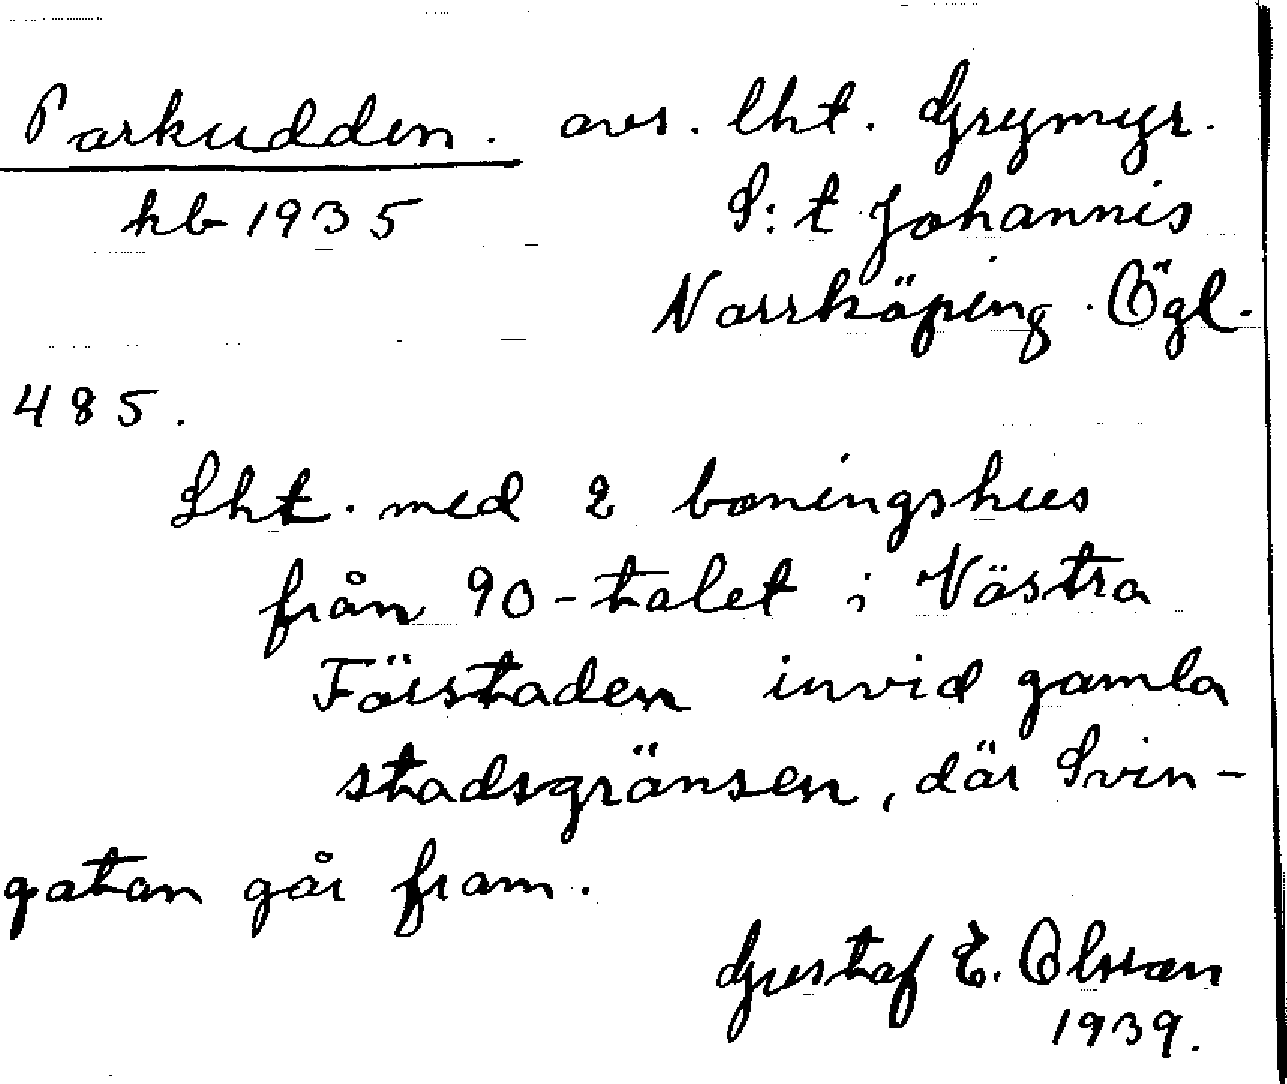 Parkudden. avs. lht. Grymyr.
kb 1935 S:t Johannis
Norrköping. Ögl.
485.
Lht. med 2 boningshus
från 90-talet i Västra
Förstaden invid gamla
stadsgränsen, där Svin-
gatan går fram.
Gustaf E. Olsson
1939.